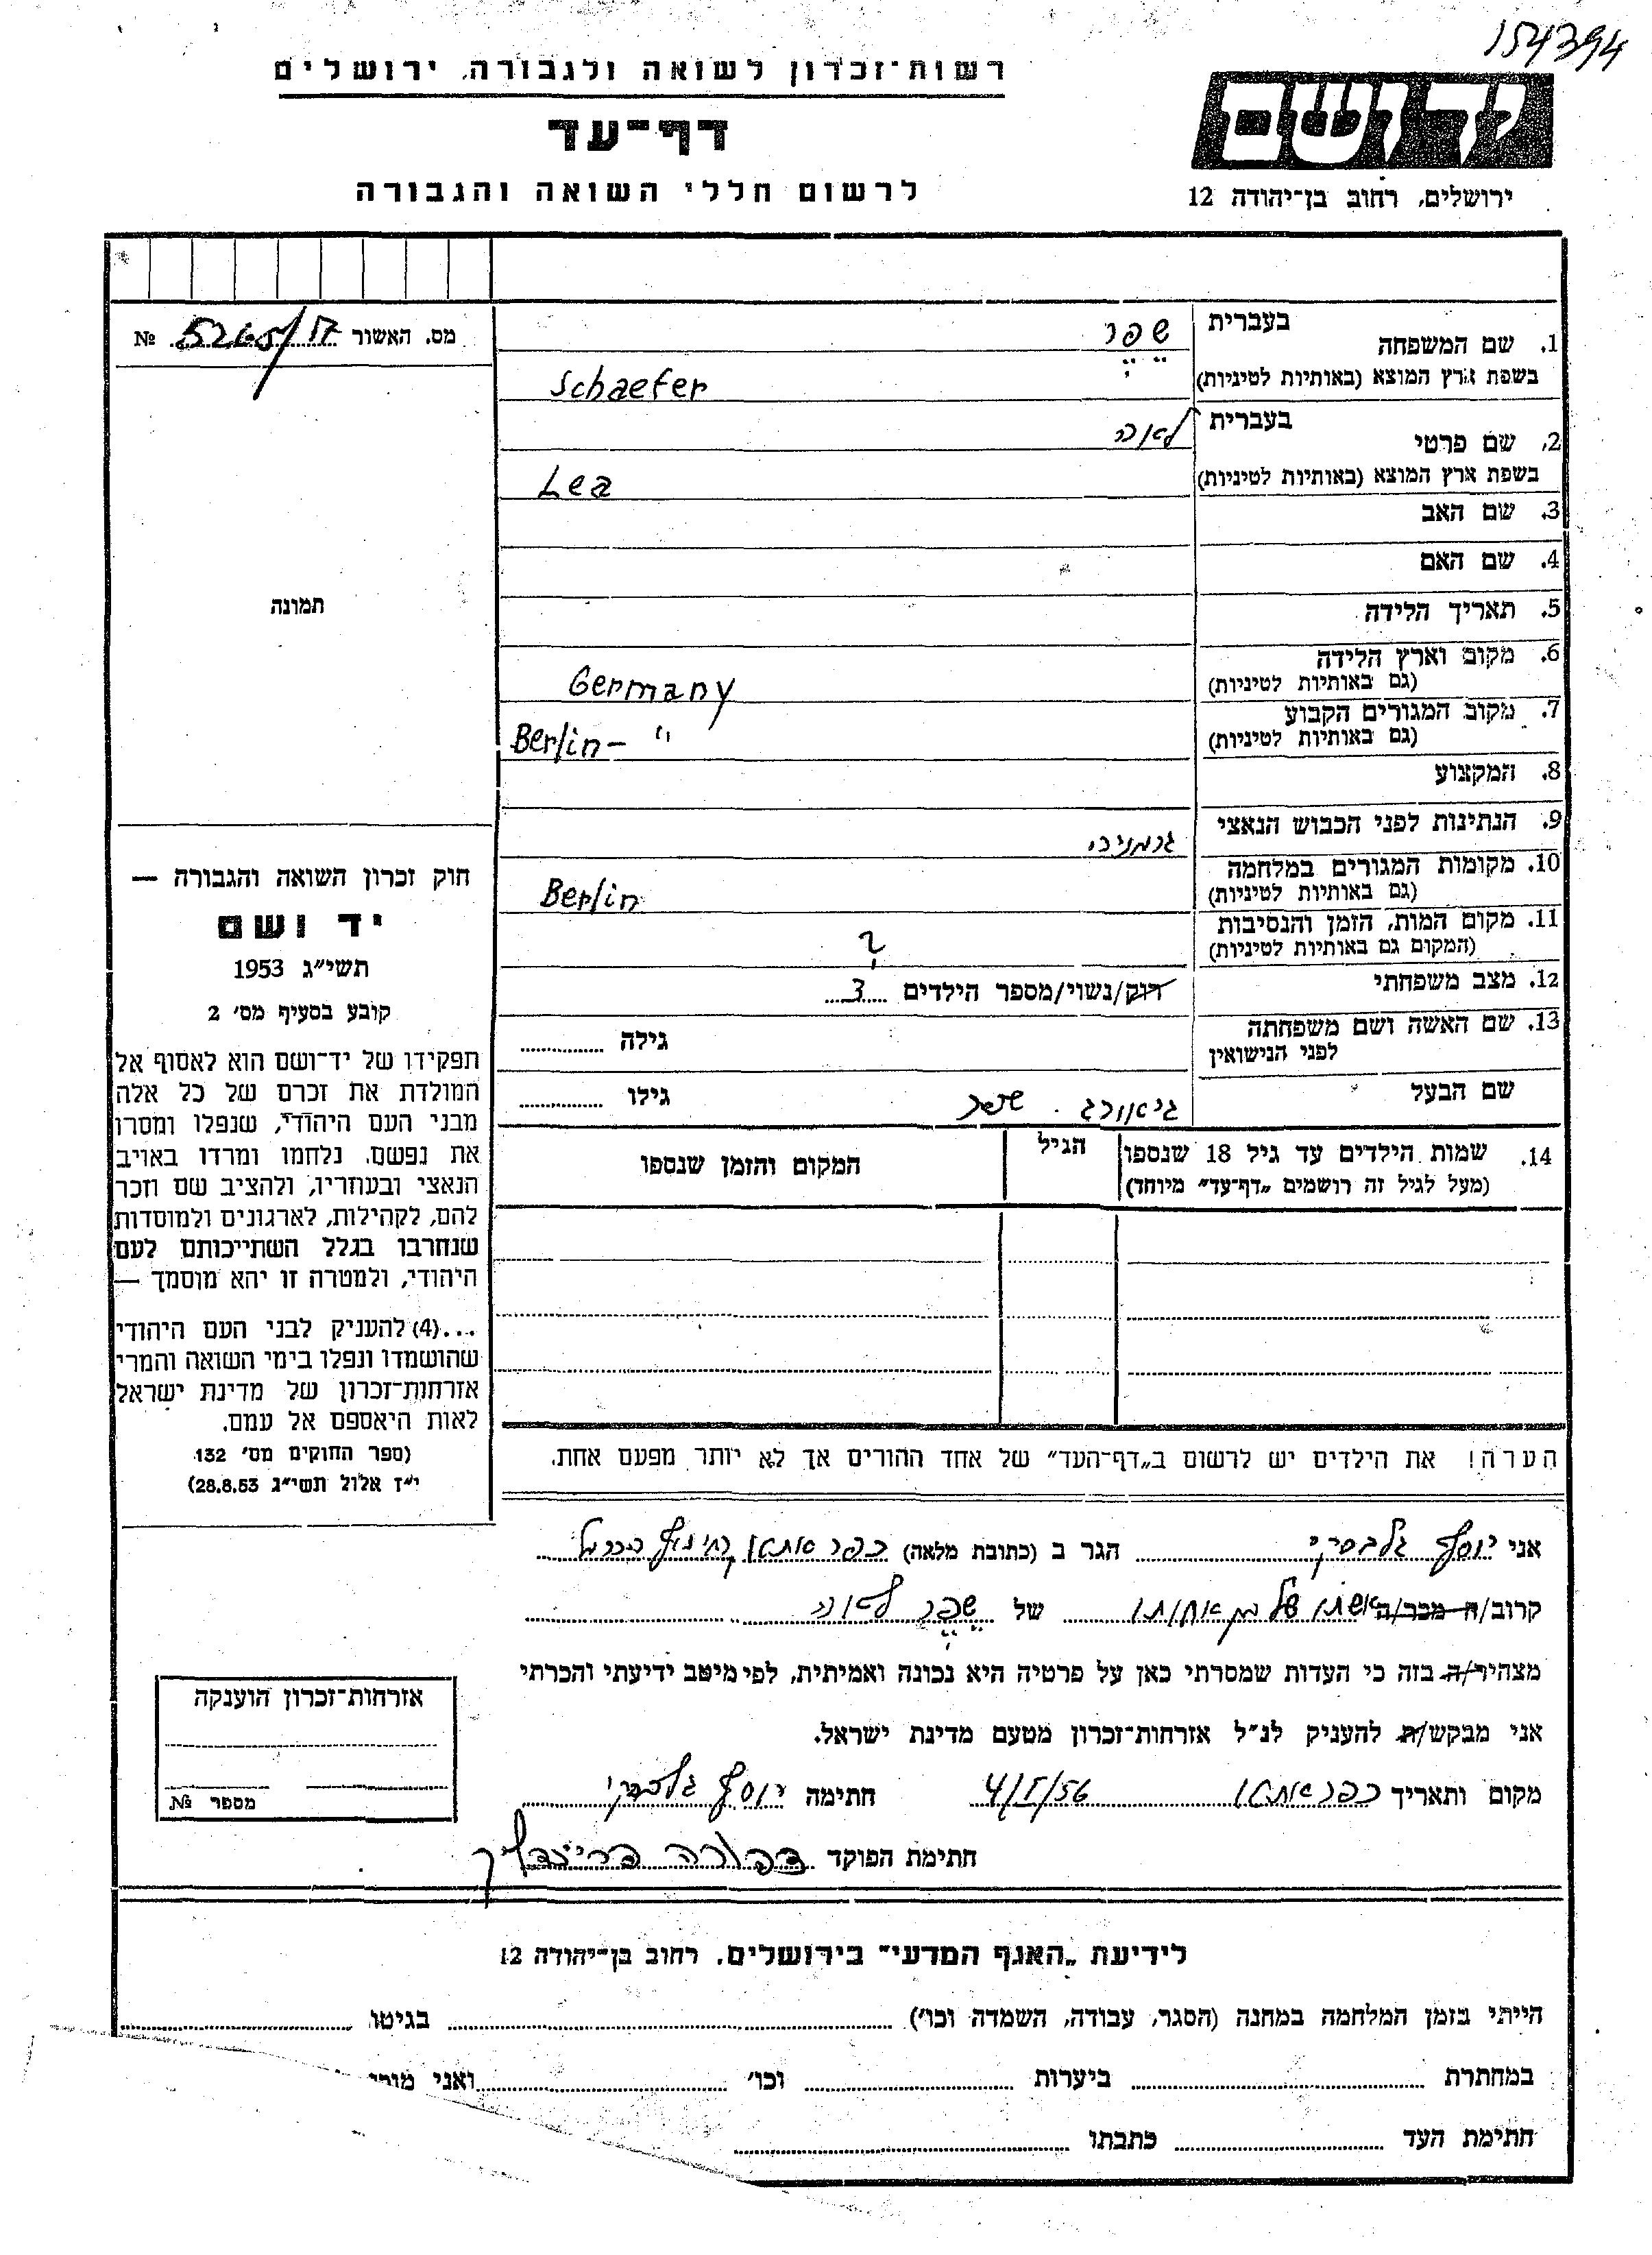 154394
רשות-זכרון לשואה ולגבורה, ירושלים
דף-עד
לרשום חללי השואה והגבורה
יד ושם
ירושלים, רחוב בן-יהודה 12
מס. האשור № 5265/
1. שם המשפחה
בעברית שפר
בשפת ארץ המוצא (באותיות לטיניות) Schaefer
2. שם פרטי
בעברית לאה
בשפת ארץ המוצא (באותיות לטיניות) Lea
3. שם האב
4. שם האם
5. תאריך הלידה
6. מקום וארץ הלידה
(גם באותיות לטיניות) Germany
7. מקום המגורים הקבוע
(גם באותיות לטיניות) Berlin – "
8. המקצוע
9. הנתינות לפני הכבוש הנאצי גרמניה
10. מקומות המגורים במלחמה
(גם באותיות לטיניות) Berlin
11. מקום המות, הזמן והנסיבות
(המקום גם באותיות לטיניות) ?
12. מצב משפחתי רוק/נשוי/מספר הילדים 3
13. שם האשה ושם משפחתה
לפני הנישואין גילה
שם הבעל גיאורג שפר גילו
14. שמות הילדים עד גיל 18 שנספו
(מעל לגיל זה רושמים „דף-עד" מיוחד)
הגיל
המקום והזמן שנספו
הערה! את הילדים יש לרשום ב„דף-העד" של אחד ההורים אך לא יותר מפעם אחת.
תמונה
חוק זכרון השואה והגבורה —
יד ושם
תשי"ג 1953
קובע בסעיף מס' 2
תפקידו של יד-ושם הוא לאסוף אל
המולדת את זכרם של כל אלה
מבני העם היהודי, שנפלו ומסרו
את נפשם, נלחמו ומרדו באויב
הנאצי ובעוזריו, ולהציב שם וזכר
להם, לקהילות, לארגונים ולמוסדות
שנחרבו בגלל השתייכותם לעם
היהודי, ולמטרה זו יהא מוסמך —
...(4) להעניק לבני העם היהודי
שהושמדו ונפלו בימי השואה והמרי
אזרחות-זכרון של מדינת ישראל
לאות היאספם אל עמם.
(ספר החוקים מס' 132
י"ז אלול תשי"ג 28.8.53)
אני יוסף הגר ב (כתובת מלאה) כפר אתא
קרוב/ה מכר/ה אשתו של בן אחותו של שפר לאה
מצהיר/ה בזה כי העדות שמסרתי כאן על פרטיה היא נכונה ואמיתית, לפי מיטב ידיעתי והכרתי
אני מבקש/ת להעניק לנ"ל אזרחות-זכרון מטעם מדינת ישראל.
מקום ותאריך כפר אתא 4/I/56 חתימה יוסף
חתימת הפוקד דבורה
אזרחות-זכרון הוענקה
מספר №
לידיעת „האגף המדעי" בירושלים, רחוב בן-יהודה 12
הייתי בזמן המלחמה במחנה (הסגר, עבודה, השמדה וכו') בגיטו
במחתרת ביערות וכו' ואני
חתימת העד כתבתו